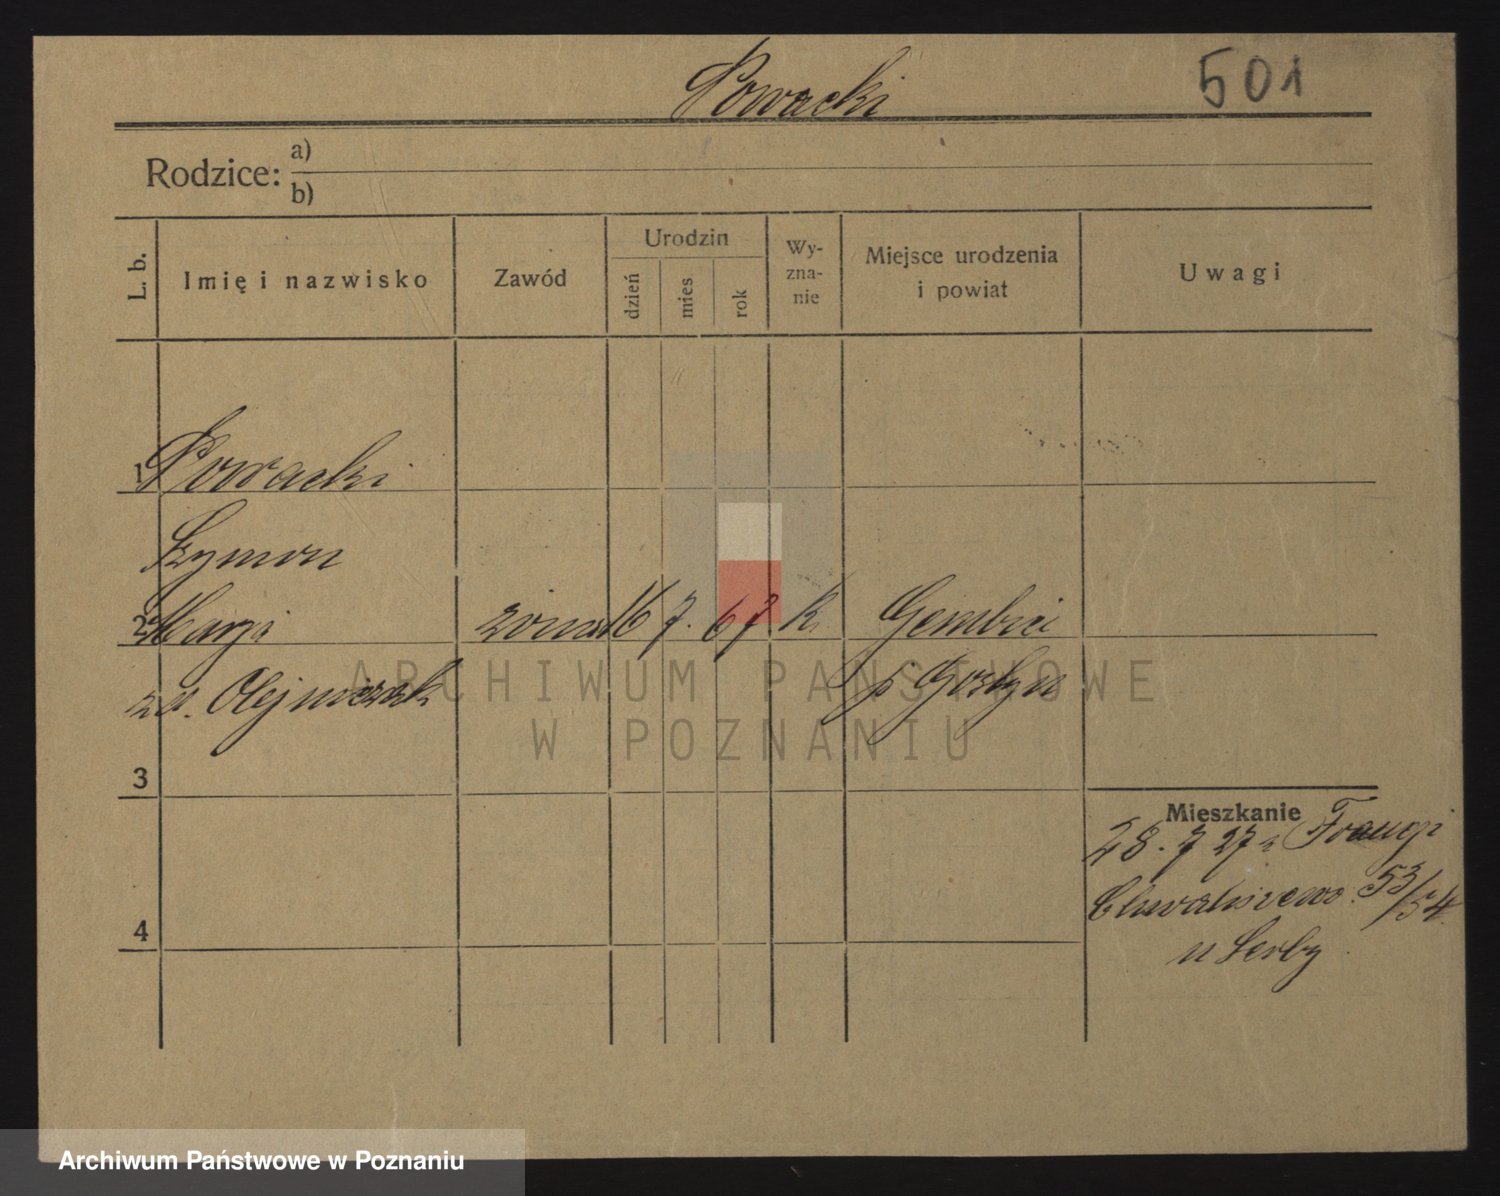 Powacki 501
Rodzice: a)
b)
L. b. Imię i nazwisko Zawód Urodzin dzień mies rok Wy-zna-nie Miejsce urodzenia i powiat Uwagi
1 Powacki
Szymon
2 Marja żona 16 7. 67 k. Gembice
zd. Olejniczak p Gostyń
ARCHIWUM PAŃSTWOWE
W POZNANIU
3
Mieszkanie
28. 7 27 z Francji
Chwaliszewo 53/54
u Serby
4
Archiwum Państwowe w Poznaniu